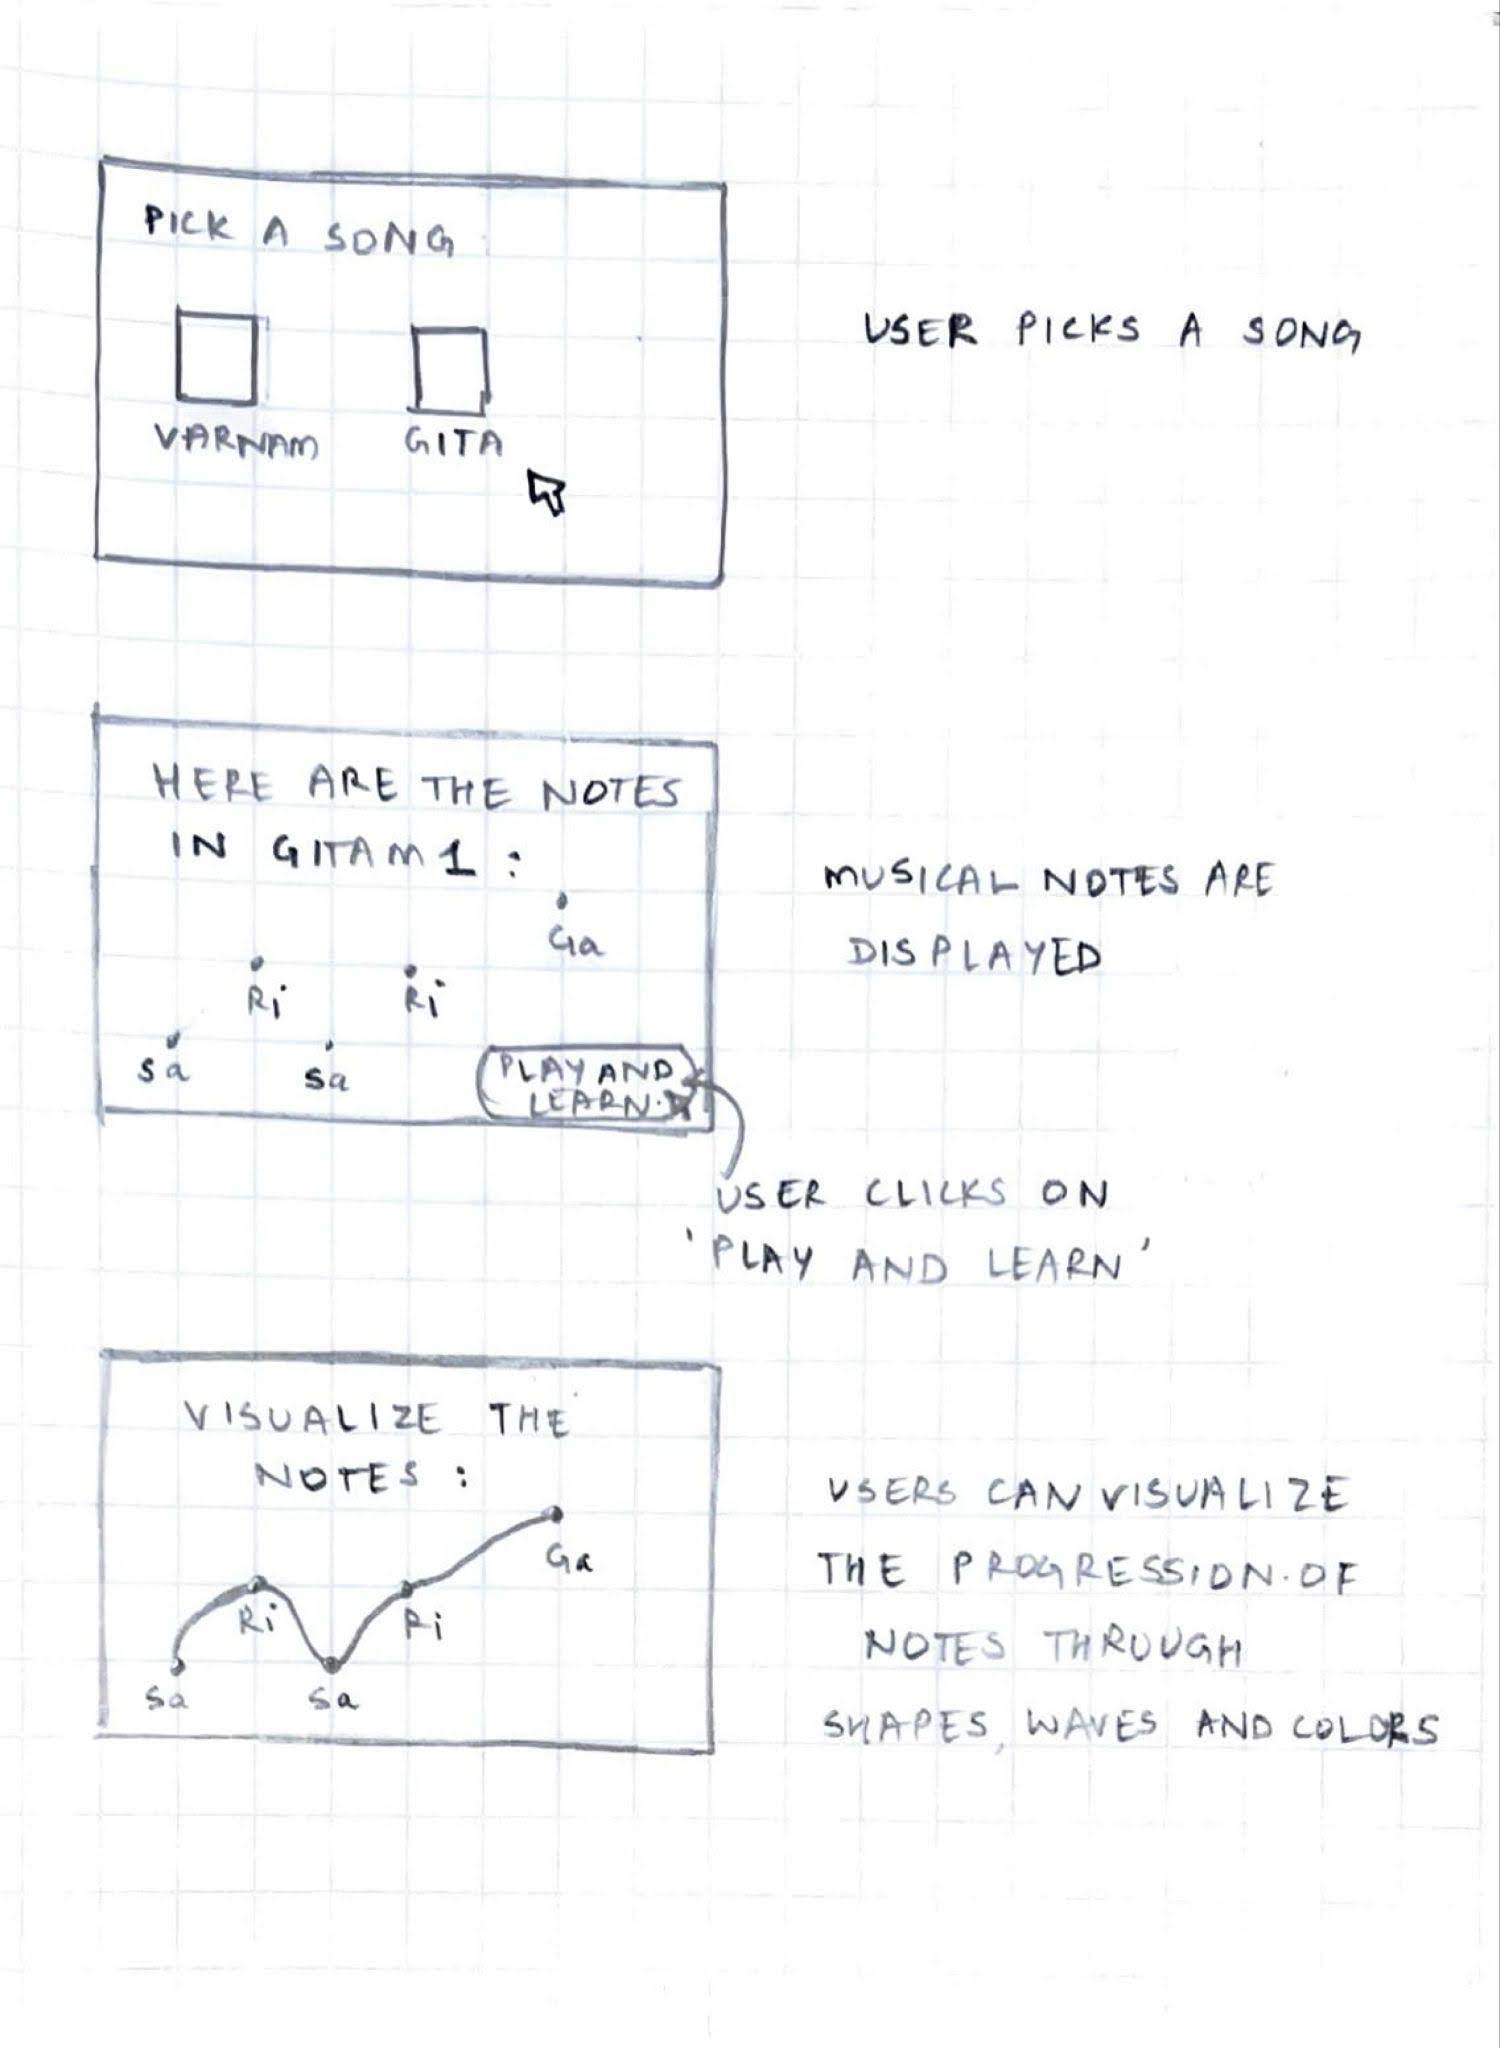 PICK A SONG
VARNAM GITA
USER PICKS A SONG
HERE ARE THE NOTES
IN GITAM 1 :
Ga
Ri Ri
Sa Sa
PLAY AND
LEARN.
MUSICAL NOTES ARE
DISPLAYED
USER CLICKS ON
'PLAY AND LEARN'
VISUALIZE THE
NOTES :
Ga
Ri Ri
Sa Sa
USERS CAN VISUALIZE
THE PROGRESSION OF
NOTES THROUGH
SHAPES, WAVES AND COLORS